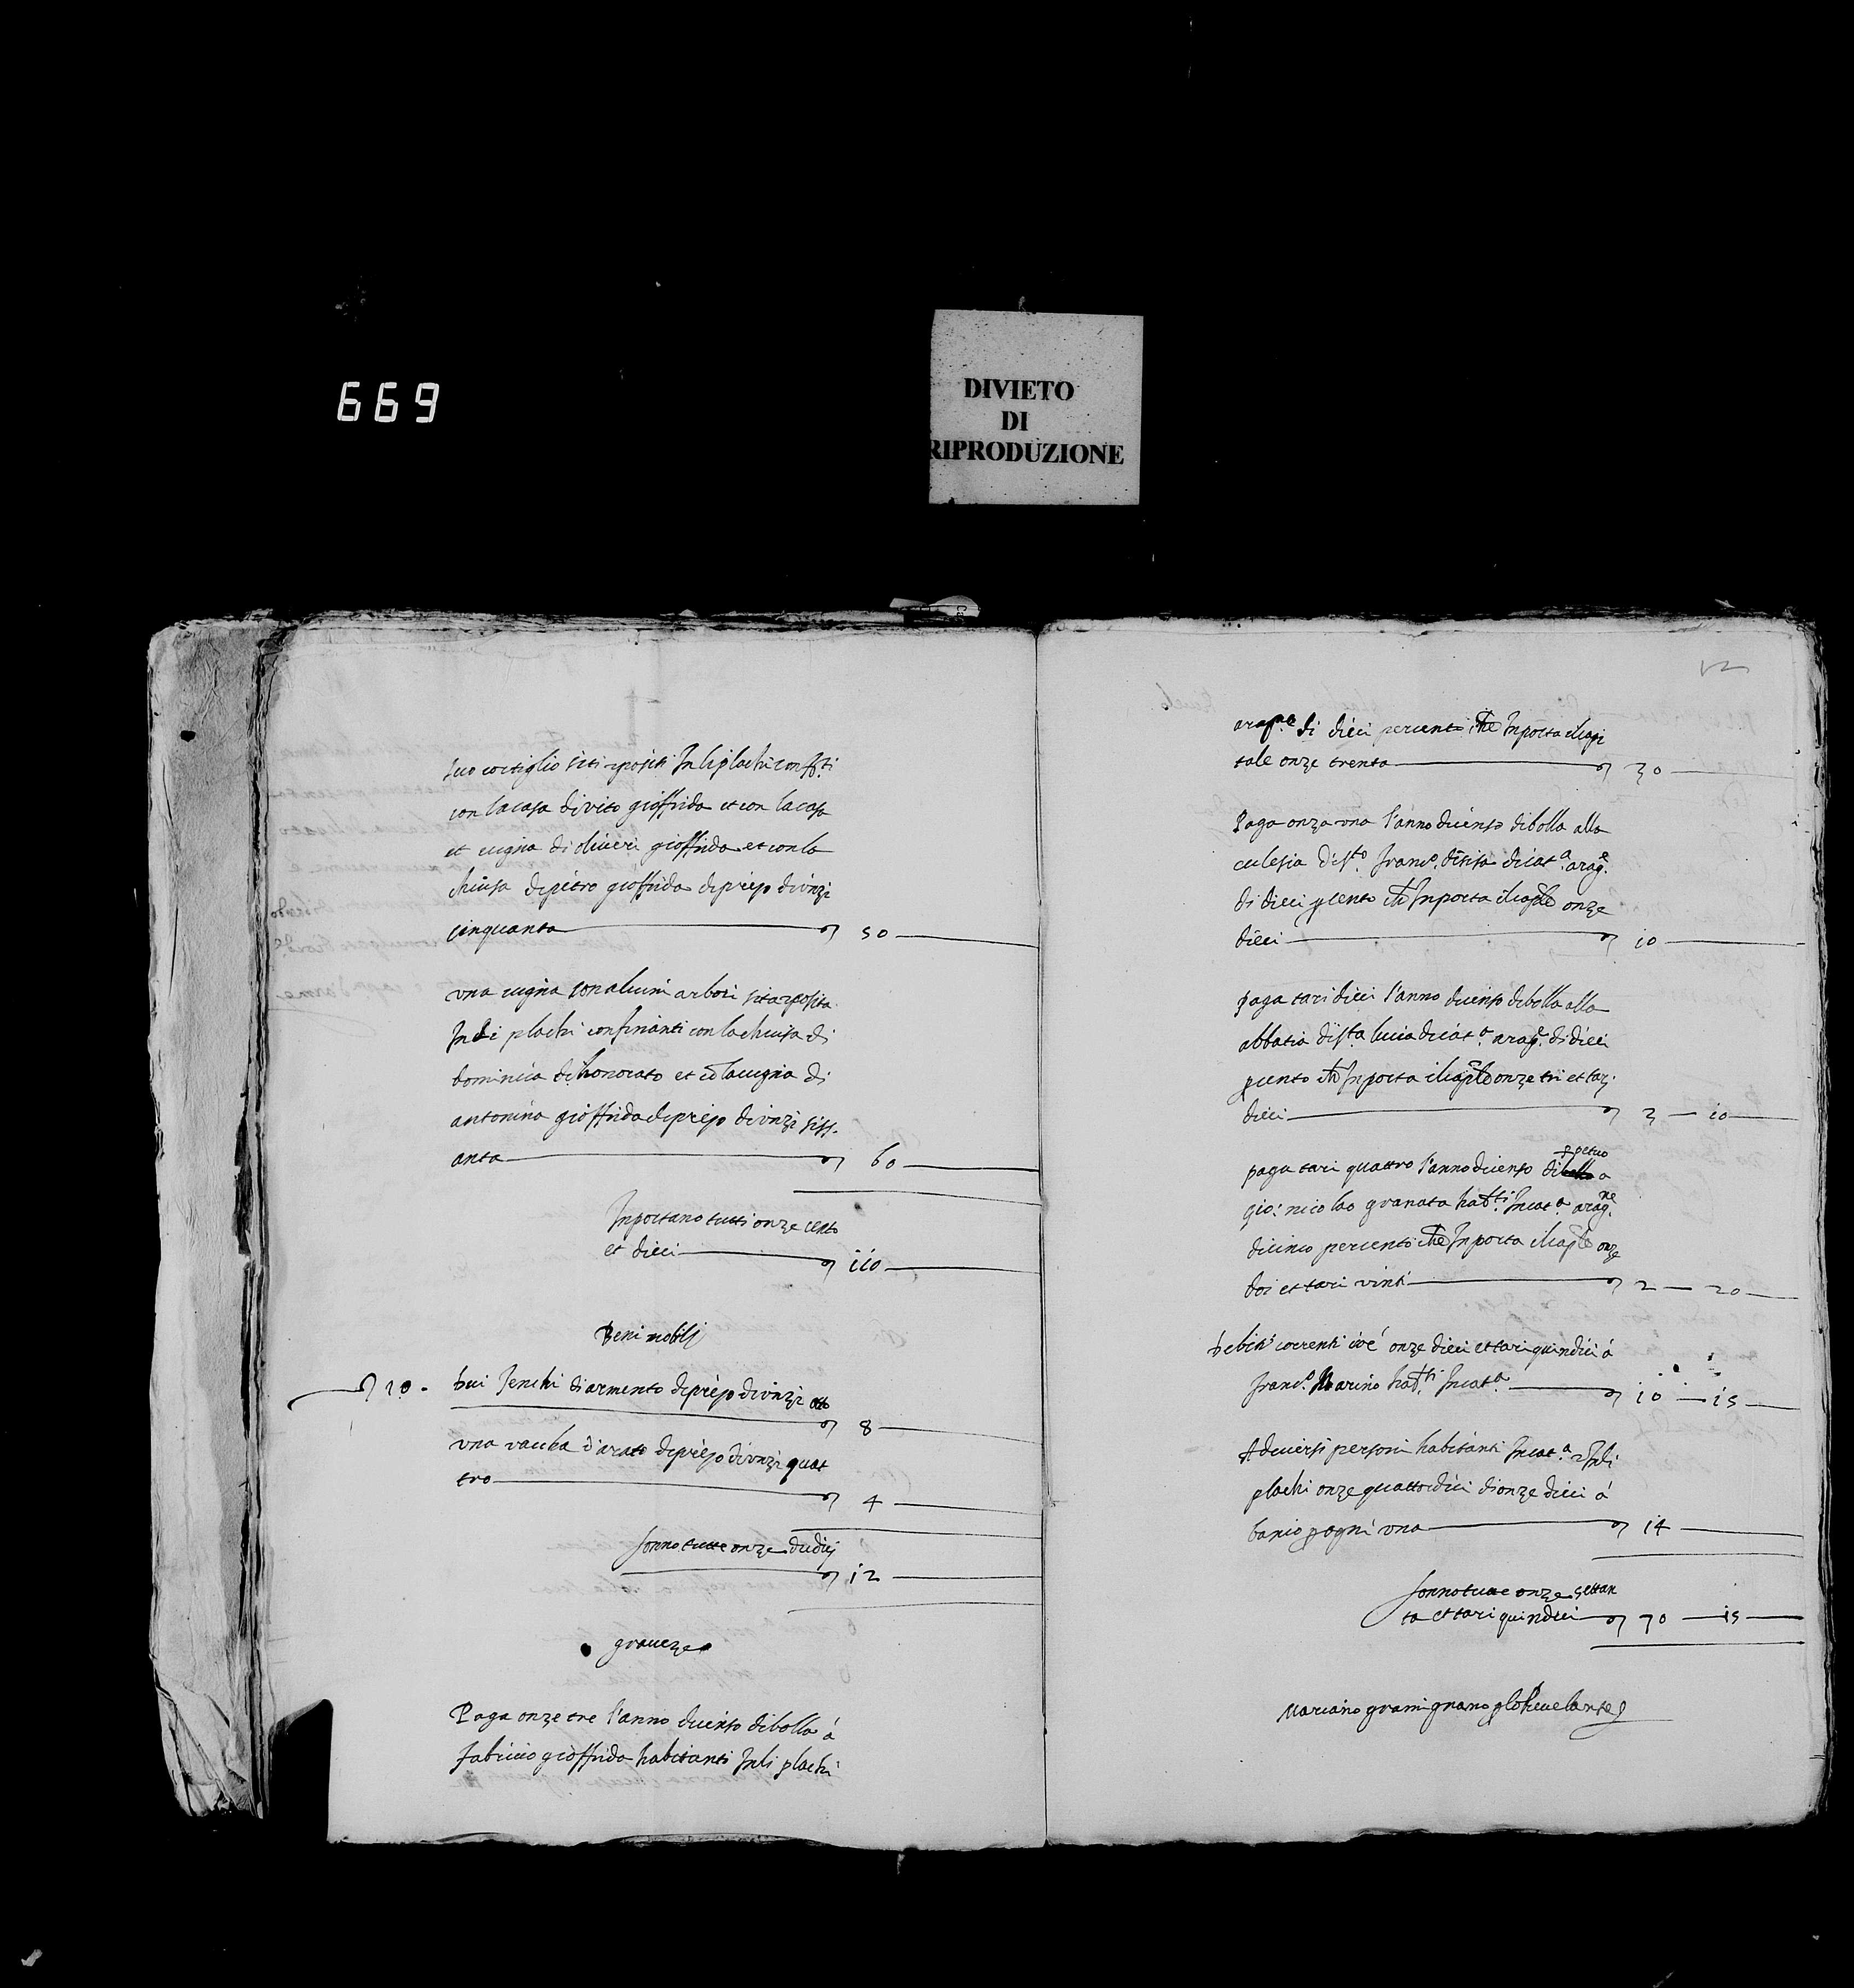 669
DIVIETO
DI
RIPRODUZIONE
suo cortiglio siti et positi In li plachi conff.ti
con la casa di vito gioffrida et con la casa
et vigna di oliveri gioffrida et con la
chiusa di pietro gioffrida di prejo di vnzi
cinquanta 50
vna vigna con alcuni arbori sita et posita
In li plachi confinanti con la chiusa di
dominica di honorato et cō la vigna di
antonina gioffrida di prejo di vnzi siss-
anta 60
Inportano tutti onze cento
et dieci 110
Beni mobilj
dui Jenchi di armento di prejo di vnzi otto
8
vna vaccha d'arato di prejo di vnzi quat
tro 4
sonno tutte onze dudicj
12
gravezze
Paga onze tre l'anno di censo di bolla á
fabricio gioffrida habitanti In li plachi
arag.ne di dieci per cento che Inporta il capi
tale onze trenta 30
Paga onza vna l'anno di censo di bolla alla
clesia di s.to Franc.o di cat.a arag.e
di dieci p cento che Inporta il cap.le onze
dieci 10
paga tari dieci l'anno di censo di bolla alla
abbatia di s.ta lucia di cat.a arag.e di dieci
p cento che Inporta il cap.le onze tri et tarj
dieci 3 — 10
paga tari quattro l'anno di censo ppetuo a
gio: nicolao granata hab.ti In cat.a arag.ne
di cinco per cento che Inporta il cap.le onze
doi et tari vinti 2 — 20
debiti correnti cioé onze dieci et tari quindici á
Franc.o Marino hab.ti In cat.a 10 — 15
A diversi personi habitanti In cat.a et In li
plachi onze quattordici di onze dieci á
banio p ogni vna 14
sonno tutte onze settan
ta et tari quindici 70 — 15
Mariano gramignano p lo Revelante